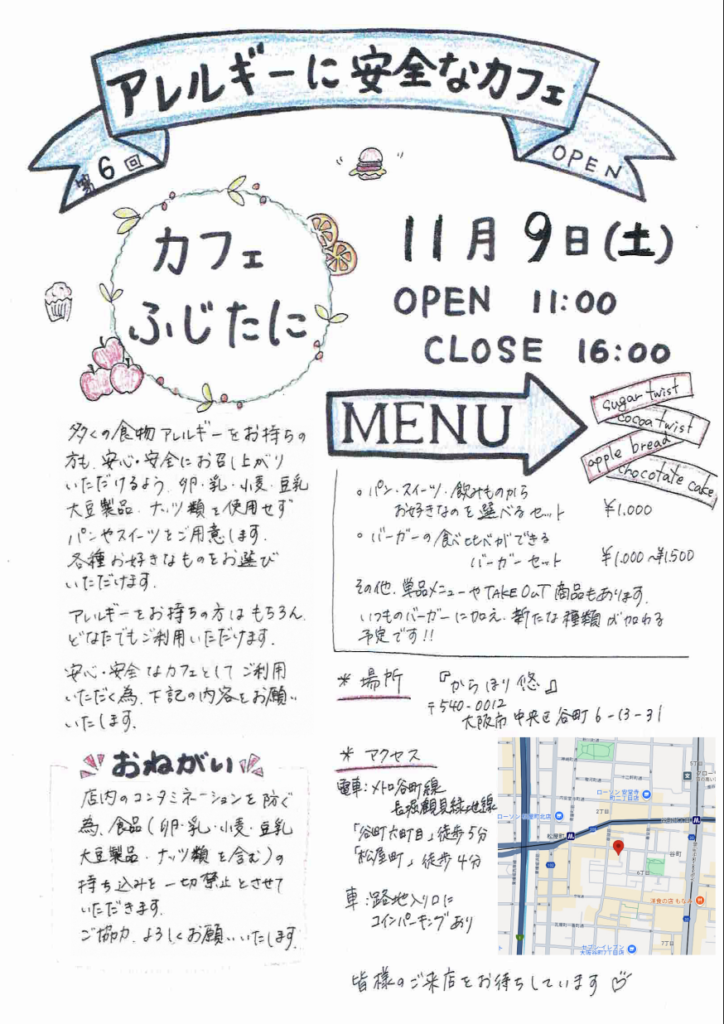 アレルギーに安全なカフェ
第6回
OPEN
カフェ
ふじたに
11月9日(土)
OPEN 11:00
CLOSE 16:00
MENU
sugar twist
cocoa twist
apple bread
chocotate cake
多くの食物アレルギーをお持ちの
方も、安心・安全にお召し上がり
いただけるよう、卵・乳・小麦・豆乳
大豆製品・ナッツ類を使用せず
パンやスイーツをご用意します。
各種お好きなものをお選び
いただけます。
アレルギーをお持ちの方はもちろん、
どなたでもご利用いただけます。
安心・安全なカフェとしてご利用
いただく為、下記の内容をお願い
いたします。
。パン・スイーツ・飲みものから
お好きなのを選べるセット ¥1.000
。バーガーの食べ比べができる
バーガーセット ¥1.000~¥1.500
その他、単品メニューやTAKE OUT商品もあります。
いつものバーガーに加え、新たな種類が加わる
予定です!!
おねがい
店内のコンタミネーションを防ぐ
為、食品(卵・乳・小麦・豆乳
大豆製品・ナッツ類を含む)の
持ち込みを一切禁止とさせて
いただきます。
ご協力、よろしくお願いいたします。
*場所 『からほり悠』
〒540-0012
大阪市中央区谷町6-13-31
*アクセス
電車:メトロ谷町線
長堀鶴見緑地線
「谷町六町目」徒歩5分
「松屋町」徒歩4分
車:路地入り口に
コインパーキングあり
ローソン 安堂寺
町二丁目店
松屋町
谷町
6丁目
洋食の店 もなみ
7丁目
7丁目
セブン-イレブン
皆様のご来店をお待ちしています♡